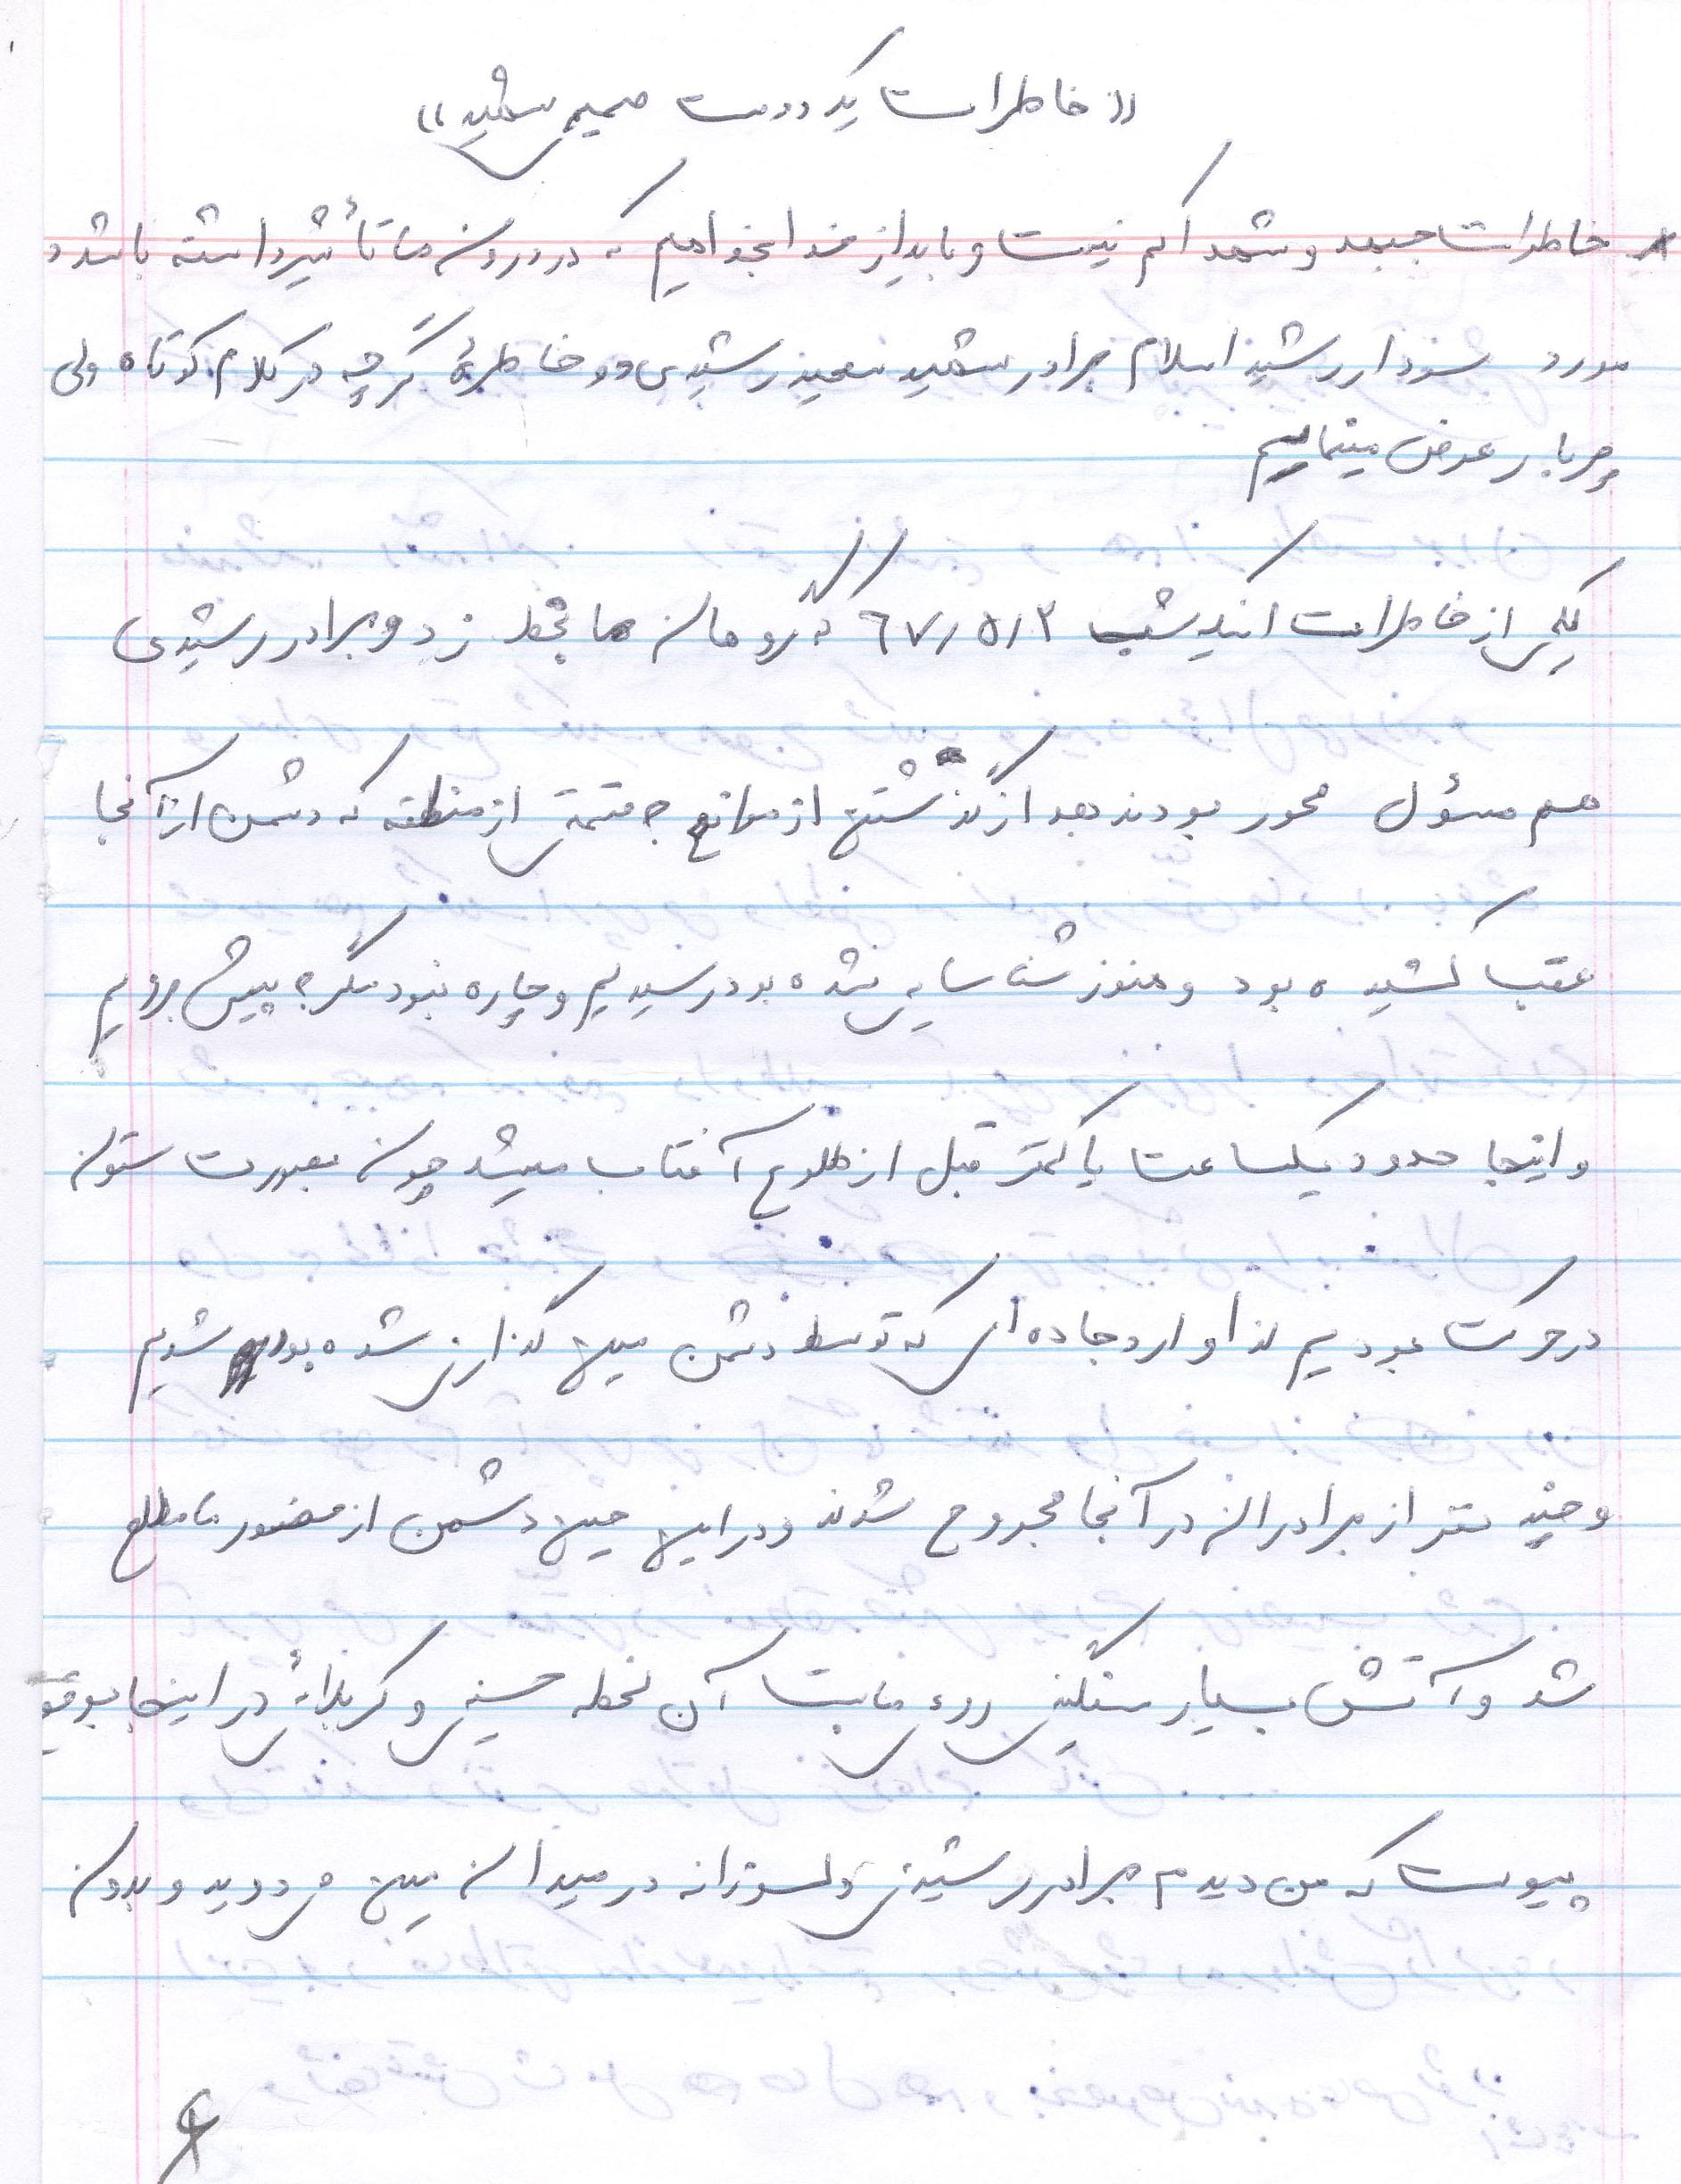 «خاطرات یک دوست صمیمی شهید»
خاطرات جبهه و شهدا کم نیست و باید از خدا بخواهیم که در درون ما تأثیر داشته باشد و
مورد سردار رشید اسلام برادر شهید سعید رشیدی دو خاطرهٔ گرچه در کلام کوتاه ولی
پربار عرض مینمایم
یکی از خاطرات اینکه شب ۶۷/۵/۳ که گردمان ما بخط زد و برادر رشیدی
هم مسئول محور بودند بعد از گذشتن از موانع به قسمتی از منطقه که دشمن از آنجا
عقب کشیده بود و هنوز شناسایی نشده بود رسیدیم و چاره نبود مگر پیش برویم
و اینجا حدود یکساعت یا کمتر قبل از طلوع آفتاب میشد چون بصورت ستون
در حرکت بودیم لذا وارد جاده ای که توسط دشمن مین گذاری شده بود شدیم
و چند نفر از برادران در آنجا مجروح شدند و در این حین دشمن از حضور ما مطلع
شد و آتش بسیار سنگینی روی ما بست آن لحظه حسینی و کربلائی در اینجا بوقوع
پیوست که من دیدم برادر رشیدی دلسوزانه در میدان مین می دوید و بدون